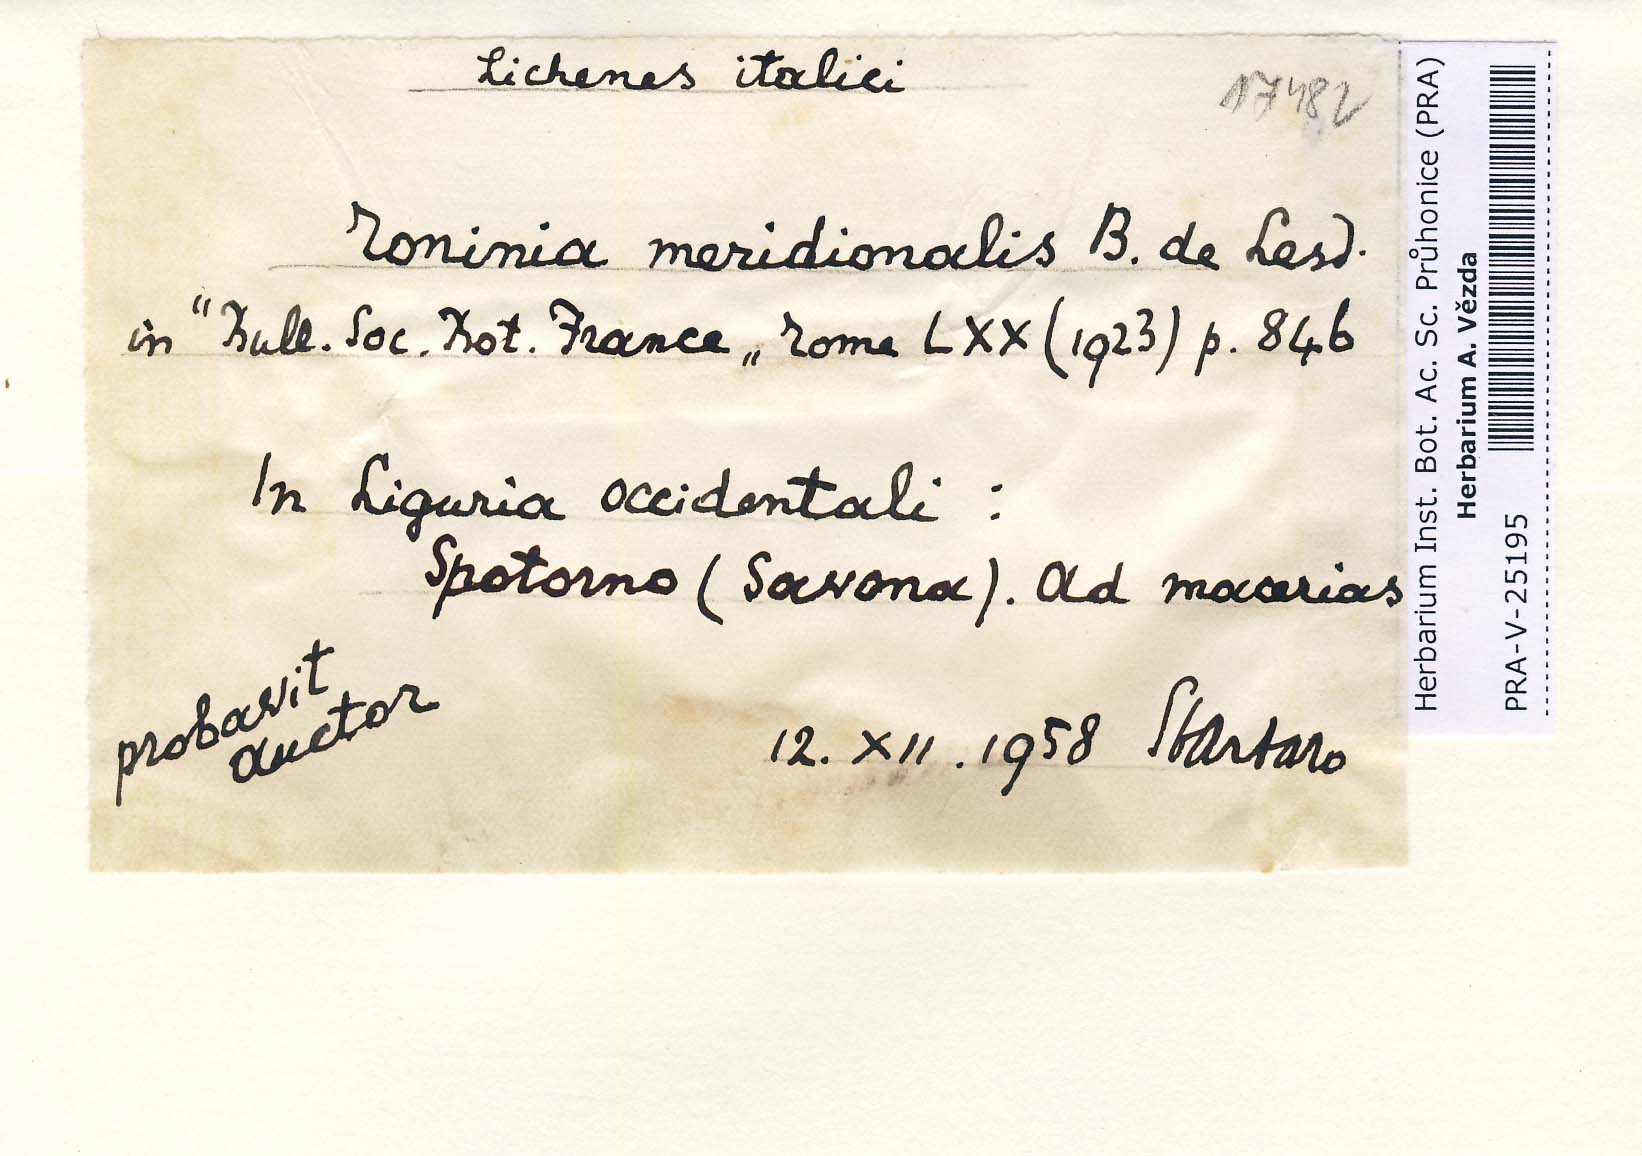 Lichenes italici
17482
Toninia meridionalis B. de Lesd.
in "Bull. Soc. Bot. France„ Tome LXX (1923) p. 846
In Liguria occidentali :
Spotorno (Savona). Ad macerias
probavit
auctor
12. XII. 1958 Sbarbaro
Herbarium Inst. Bot. Ac. Sc. Průhonice (PRA)
Herbarium A. Vězda
PRA-V-25195